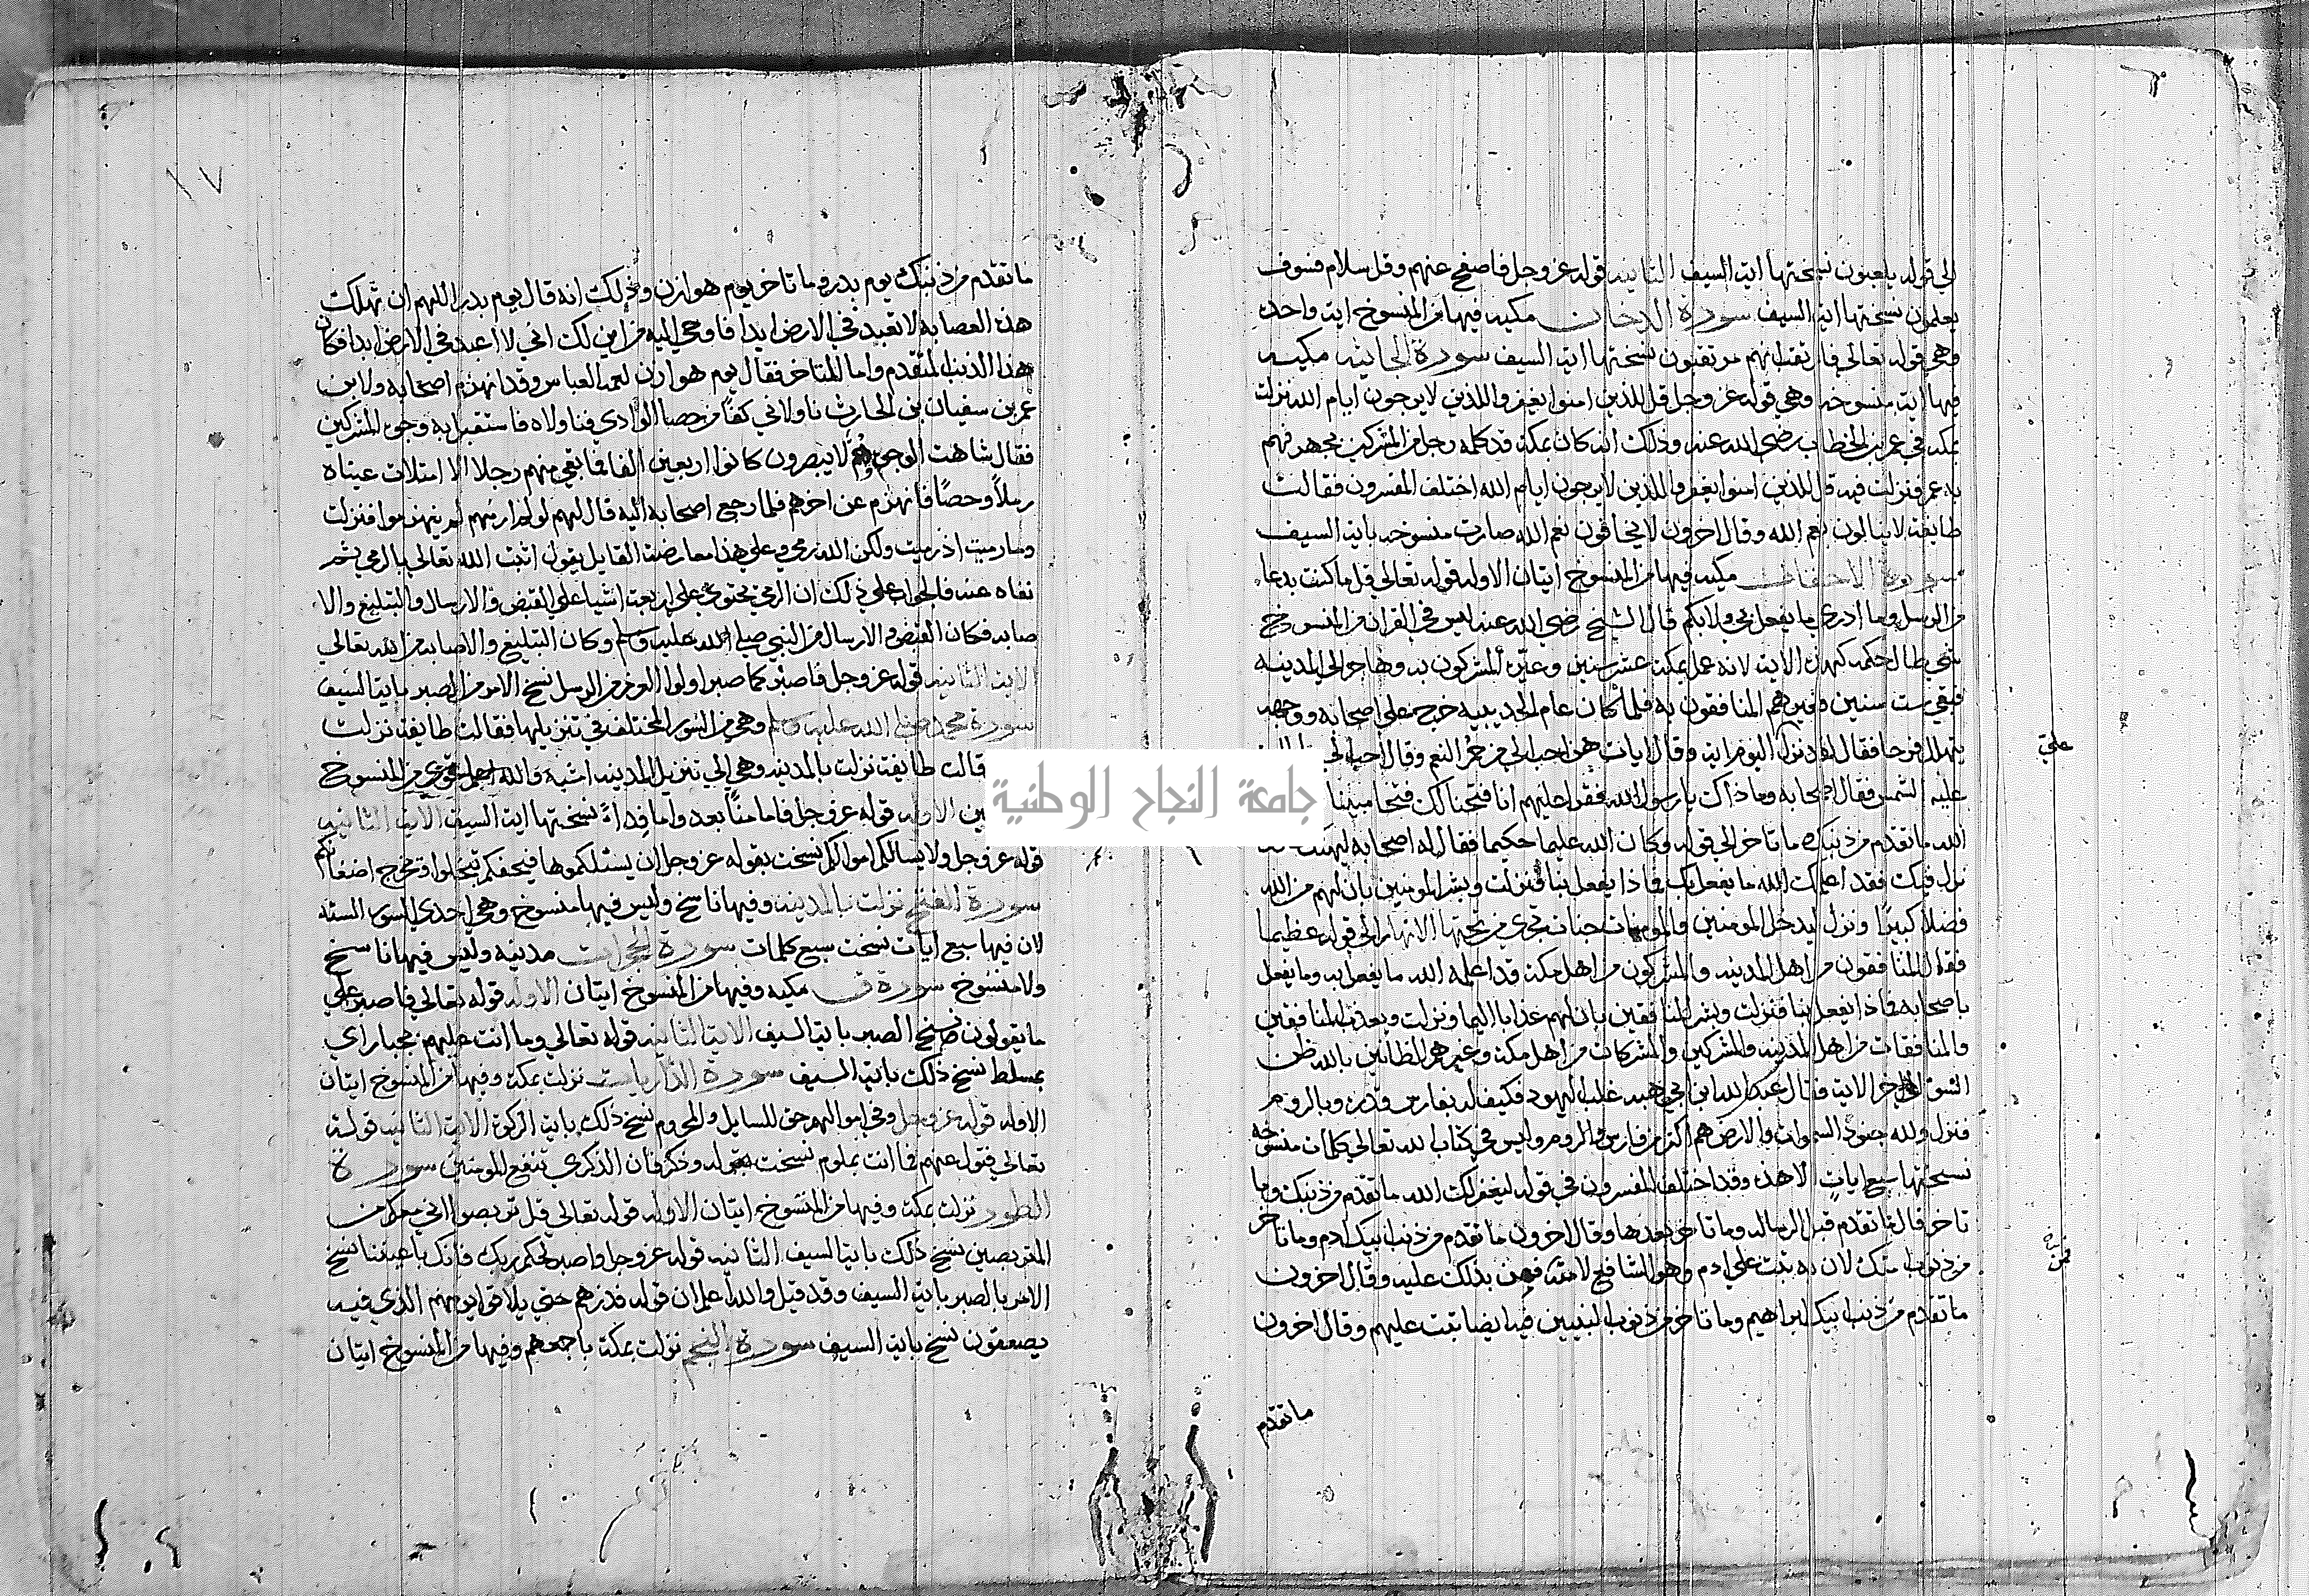 الي قوله يلعبون نسختها ايت السيف الثانيه قوله عز وجل فاصفح عنهم وقل سلام فسوف
يعلمون نسختها ايت السيف سورة الدخان مكيه فيها من المنسوخ ايت واحده
وهي قوله تعالي فارتقب انهم مرتقبون نسختها ايت السيف سورة الجاثيه مكيه
فيها ايت منسوخه وهي قوله عز وجل قل للذين امنوا يغفروا للذين لايرجون ايام الله نزلت
بمكه في عمر بن الخطاب رضي الله عنه وذلك انه كان بمكه قد كلمه رجل من المشركين فهم
به عمر فنزلت فيه قل للذين امنوا يغفروا للذين لايرجون ايام الله اختلف المفسرون فقالت
طايفه لاينالون نعم الله وقال اخرون لايخافون نعم الله صارت منسوخه بايت السيف
سورة الاحقاف مكيه فيها من المنسوخ ايتان الاوله قوله تعالي قل ما كنت بدعا
من الرسل وما ادري ما يفعل بي ولا بكم قال الشيخ رضي الله عنه ليس في القران من المنسوخ
شي طال حكمه كهذه الايت لانه عمل بمكه عشر سنين وعيره المشركون به وهاجر الي المدينه
فبقي ست سنين وعيرهم المنافقون به فلما كان عام الحديبيه خرج علي اصحابه ووجهه
يتهلل فرحا فقال لقد نزل اليوم ايه وقال ايات هن احب الي من حمر النعم وقال احب الي
عليه الشمس فقال اصحابه وما ذاك يا رسول الله فقرا عليهم انا فتحنا لك فتحا مبينا
الله ما تقدم من ذنبك وما تاخر الي قوله وكان الله عليما حكيما فقال له اصحابه ليهنك
نزل فيك فقد اعلمك الله ما يفعل بك فماذا يفعل بنا فنزلت وبشر المومنين بان لهم من الله
فضلا كبيرا ونزل ليدخل المومنين والمومنات جنات تجري من تحتها الانهار الي قوله عظيما
فقال المنافقون من اهل المدينه والمشركون من اهل مكه قد اعلمه الله ما يفعل به وما يفعل
باصحابه فماذا يفعل بنا فنزلت وبشر المنافقين بان لهم عذابا اليما ونزلت ويعذب المنافقين
والمنافقات من اهل المدينه والمشركين والمشركات من اهل مكه وغيرهم الظانين بالله ظن
السوء الي اخر الايه فقال عبد الله ابن ابي هبه غلب اليهود فكيف له بفارس وبالروم
فنزل ولله جنود السموات والارض هم اكثر من فارس والروم وليس في كتاب الله تعالي كلمات منسوخه
نسختها سبع ايات الا هذه وقد اختلف المفسرون في قوله ليغفر لك الله ما تقدم من ذنبك وما
تاخر قال ما تقدم قبل الرساله وما تاخر بعدها وقال اخرون ما تقدم من ذنب ابيك ادم وما تاخر
من ذنوب امتك لان به تبت علي ادم وهو الشافع لامته فمن بذلك عليه وقال اخرون
ما تقدم من ذنب ابيك ابراهيم وما تاخر من ذنوب النبيين فبايضا تبت عليهم وقال اخرون
ما تقدم
١٧
ما تقدم من ذنبك يوم بدر وما تاخر يوم هوازن وذلك انه قال يوم بدر اللهم ان تهلك
هذه العصابه لا تعبد في الارض ابدا فاوحي اليه من اين لك اني لا اعبد في الارض ابدا فكان
هذا الذنب المتقدم واما المتاخر فقال يوم هوازن لعمه العباس وقد انهزم اصحابه ولابن
عمه بن سفيان بن الحارث ناولاني كفا من حصا الوادي فناولاه فاستقبل به وجوه المشركين
فقال شاهت الوجوه لايبصرون كانوا اربعين الفا فما بقي منهم رجلا الا امتلات عيناه
رملا وحصا فانهزم عن اخرهم فلما رجع اصحابه اليه قال لهم لو لم ارمهم لم ينهزموا فنزلت
وما رميت اذ رميت ولكن الله رمي وعلي هذا معارضه القايل يقول اثبت الله تعالي بالرمي ثم
نفاه عنه فالجواب علي ذلك ان الرمي يحتوي علي اربعت اشيا علي القبض والارسال والتبليغ والا
صابه فكان القبض والارسال من النبي صلي الله عليه وسلم وكان التبليغ والاصابه من الله تعالي
الايت الثانيه قوله عز وجل فاصبر كما صبر اولوا العزم من الرسل نسخ الامر من الصبر بايت السيف
سورة محمد صلي الله عليه وسلم وهي من السور المختلف في تنزيلها فقالت طايفه نزلت
قالت طايفت نزلت بالمدينه وهي الي تنزيل المدينه اشبه والله اعلم تحتوي من المنسوخ
الاوله قوله عز وجل فاما منا بعد واما فداء نسختها ايت السيف الايت الثانيه
قوله عز وجل ولا يسالكم اموالكم نسخت بقوله عز وجل ان يسئلكموها فيحفكم تبخلوا ويخرج اضغانكم
سورة الفتح نزلت بالمدينه وفيها ناسخ وليس فيها منسوخ وهي احدي السور السته
لان فيها سبع ايات نسخت سبع كلمات سورة الحجرات مدنيه وليس فيها ناسخ
ولا منسوخ سورة ق مكيه وفيها من المنسوخ ايتان الاوله قوله تعالي فاصبر علي
ما يقولون نسخ الصبر بايت السيف الايت الثانيه قوله تعالي وما انت عليهم بجبار اي
بمسلط نسخ ذلك بايت السيف سورة الذاريات نزلت بمكه وفيها من المنسوخ ايتان
الاوله قوله عز وجل وفي اموالهم حق للسايل والمحروم نسخ ذلك بايت الزكوة الايت الثانيه قوله
تعالي فتول عنهم فما انت بملوم نسخت بقوله وذكر فان الذكري تنفع المومنين سورة
الطور نزلت بمكه وفيها من المنسوخ ايتان الاوله قوله تعالي قل تربصوا اني معكم من
المتربصين نسخ ذلك بايت السيف الثانيه قوله عز وجل واصبر لحكم ربك فانك باعيننا نسخ
الامر بالصبر بايت السيف وقد قيل والله اعلم ان قوله فذرهم حتي يلاقوا يومهم الذي فيه
يصعقون نسخ بايت السيف سورة النجم نزلت بمكه باجمعهم وفيها من المنسوخ ايتان
جامعة النجاح الوطنية